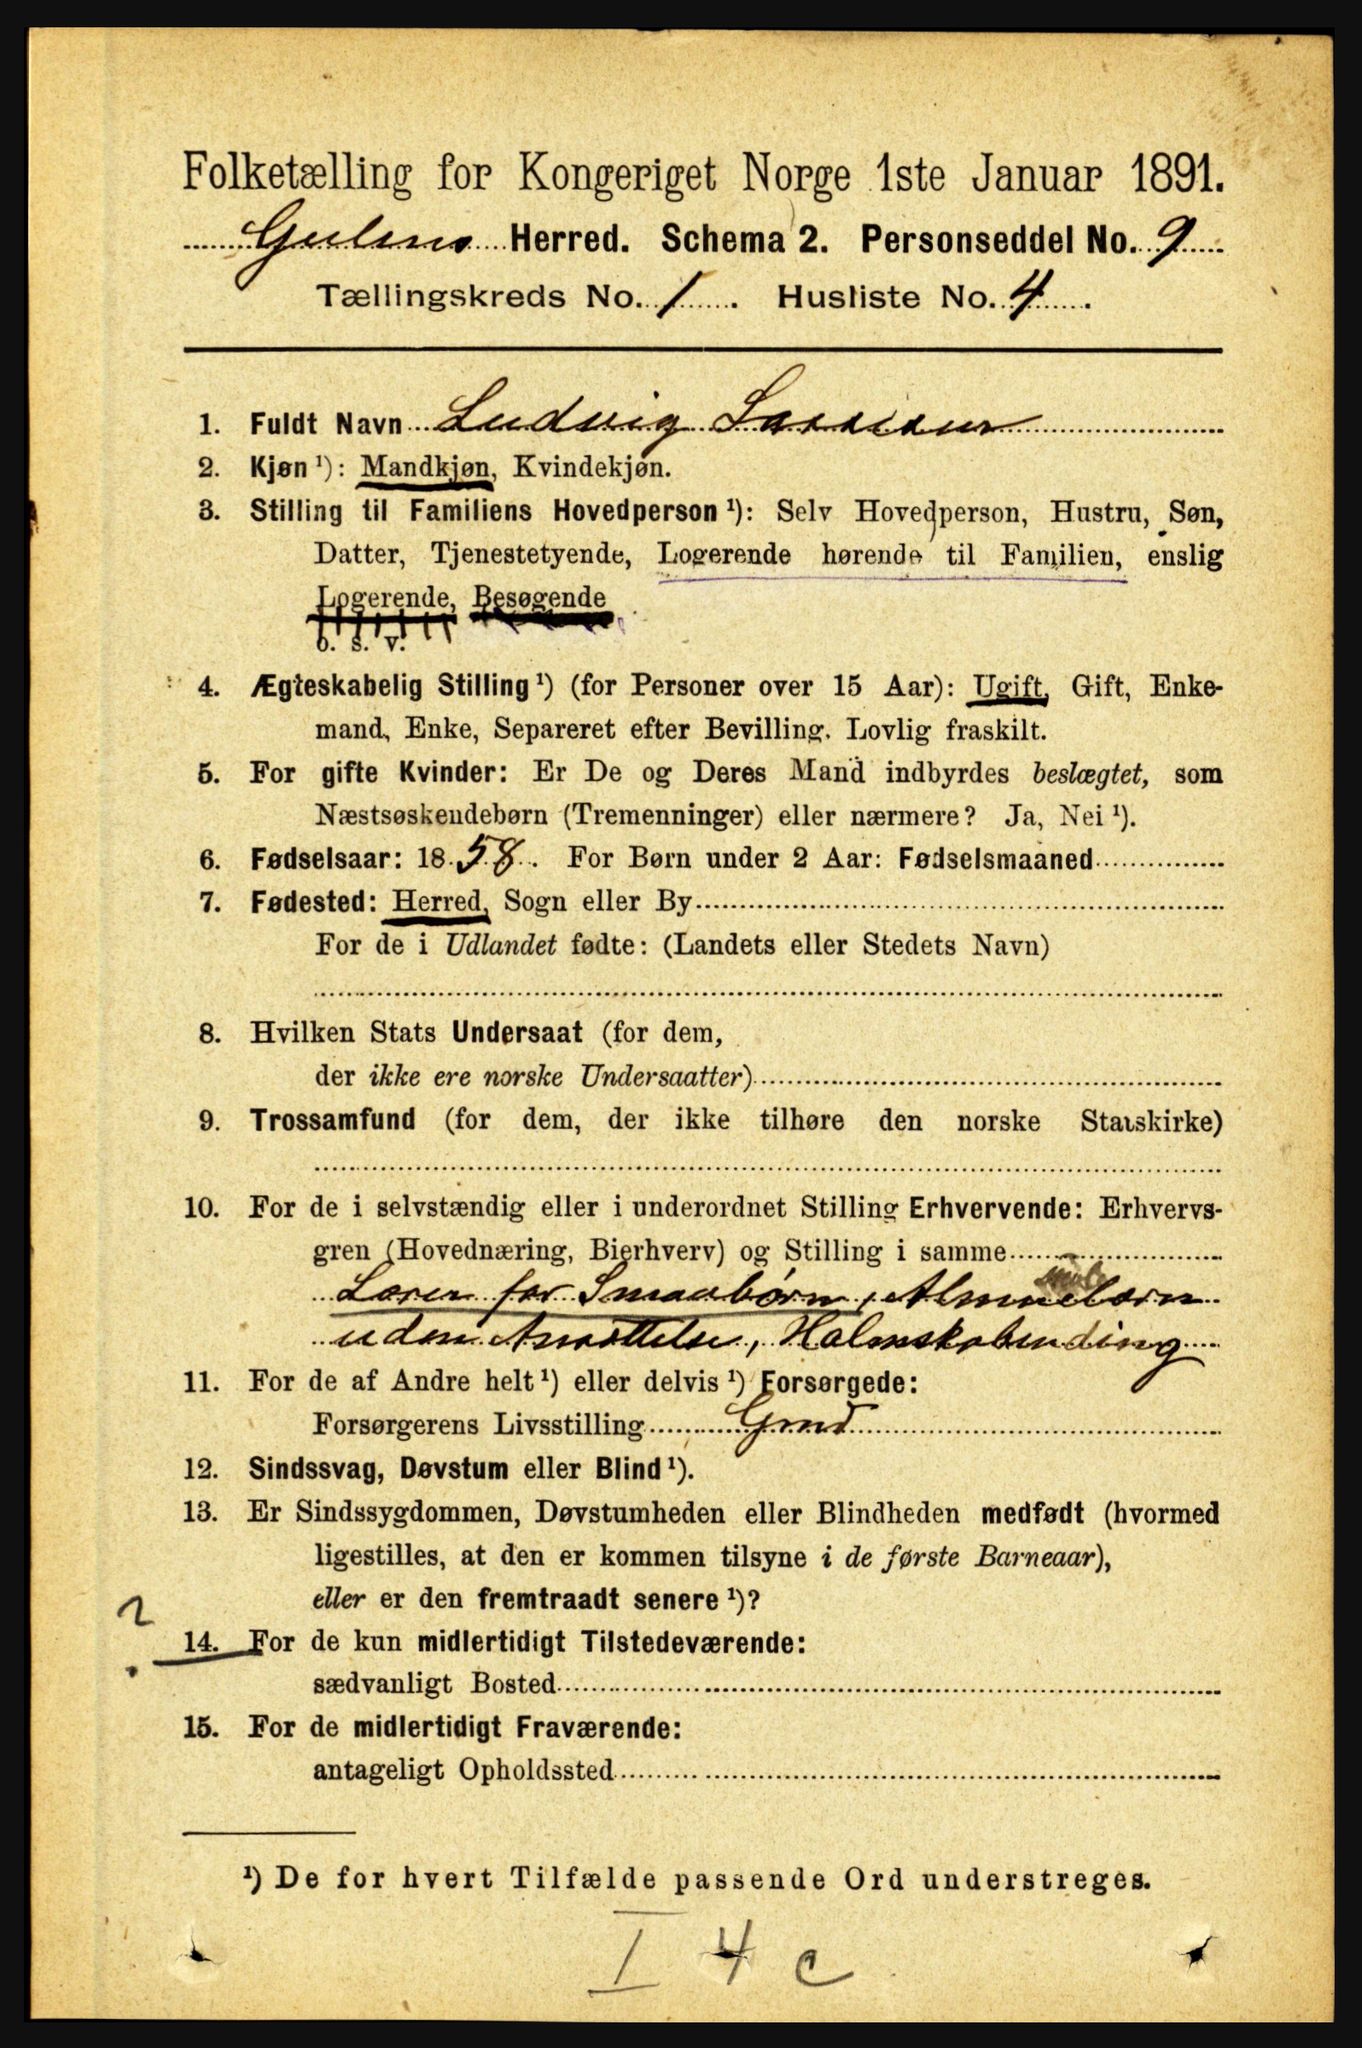 Folketælling for Kongeriget Norge 1ste Januar 1891.
Gulens Herred. Schema 2. Personseddel No. 9
Tællingskreds No. 1. Husliste No. 4.
1. Fuldt Navn Ludvig
2. Kjøn ¹): Mandkjøn, Kvindekjøn.
3. Stilling til Familiens Hovedperson ¹): Selv Hovedperson, Hustru, Søn,
Datter, Tjenestetyende, Logerende hørende til Familien, enslig
Logerende, Besøgende
o. s. v.
4. Ægteskabelig Stilling ¹) (for Personer over 15 Aar): Ugift, Gift, Enke-
mand, Enke, Separeret efter Bevilling. Lovlig fraskilt.
5. For gifte Kvinder: Er De og Deres Mand indbyrdes beslægtet, som
Næstsøskendebørn (Tremenninger) eller nærmere? Ja, Nei ¹).
6. Fødselsaar: 1858. For Børn under 2 Aar: Fødselsmaaned
7. Fødested: Herred, Sogn eller By
For de i Udlandet fødte: (Landets eller Stedets Navn)
8. Hvilken Stats Undersaat (for dem,
der ikke ere norske Undersaatter)
9. Trossamfund (for dem, der ikke tilhøre den norske Statskirke)
10. For de i selvstændig eller i underordnet Stilling Erhvervende: Erhvervs-
gren (Hovednæring, Bierhverv) og Stilling i samme
Lærer for Smaabørn,
uden Ansættelse,
11. For de af Andre helt ¹) eller delvis ¹) Forsørgede:
Forsørgerens Livsstilling Gmd
12. Sindssvag, Døvstum eller Blind ¹).
13. Er Sindssygdommen, Døvstumheden eller Blindheden medfødt (hvormed
ligestilles, at den er kommen tilsyne i de første Barneaar),
eller er den fremtraadt senere ¹)?
?
14. For de kun midlertidigt Tilstedeværende:
sædvanligt Bosted
15. For de midlertidigt Fraværende:
antageligt Opholdssted
¹) De for hvert Tilfælde passende Ord understreges.
I 4 c